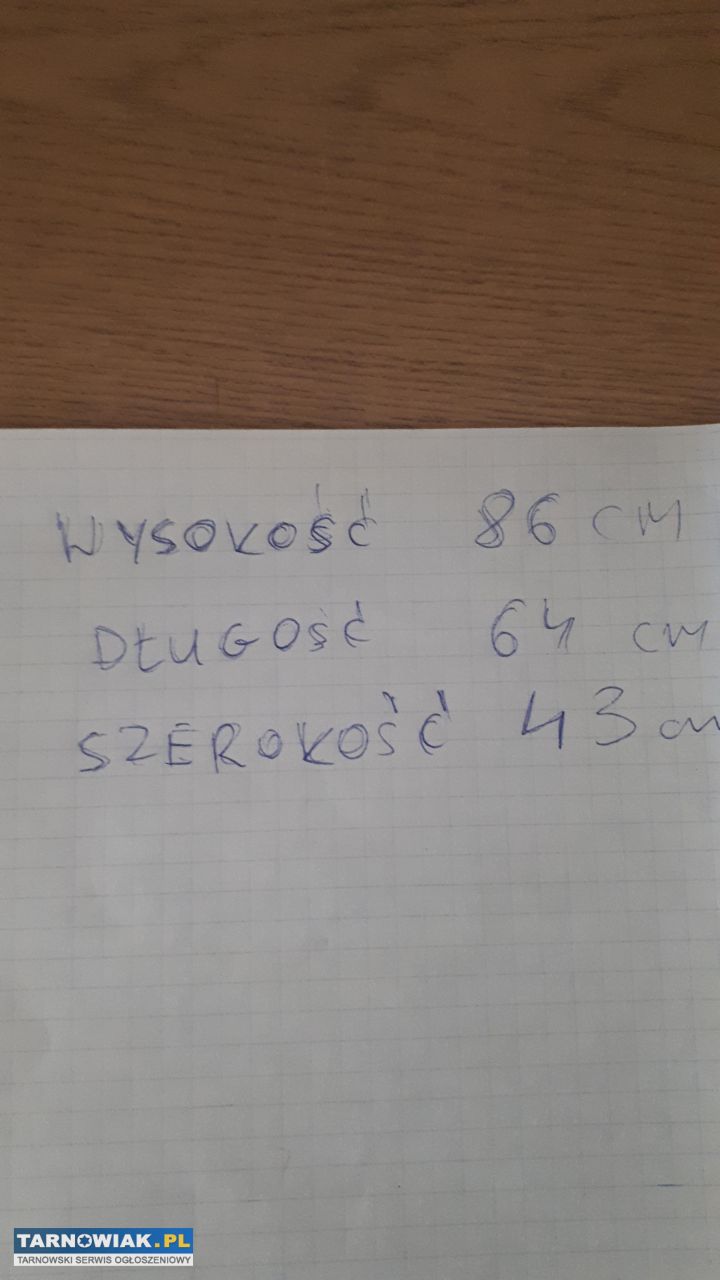 WYSOKOŚĆ 86 CM
DŁUGOŚĆ 64 CM
SZEROKOŚĆ 43 cm
TARNOWIAK.PL
TARNOWSKI SERWIS OGŁOSZENIOWY